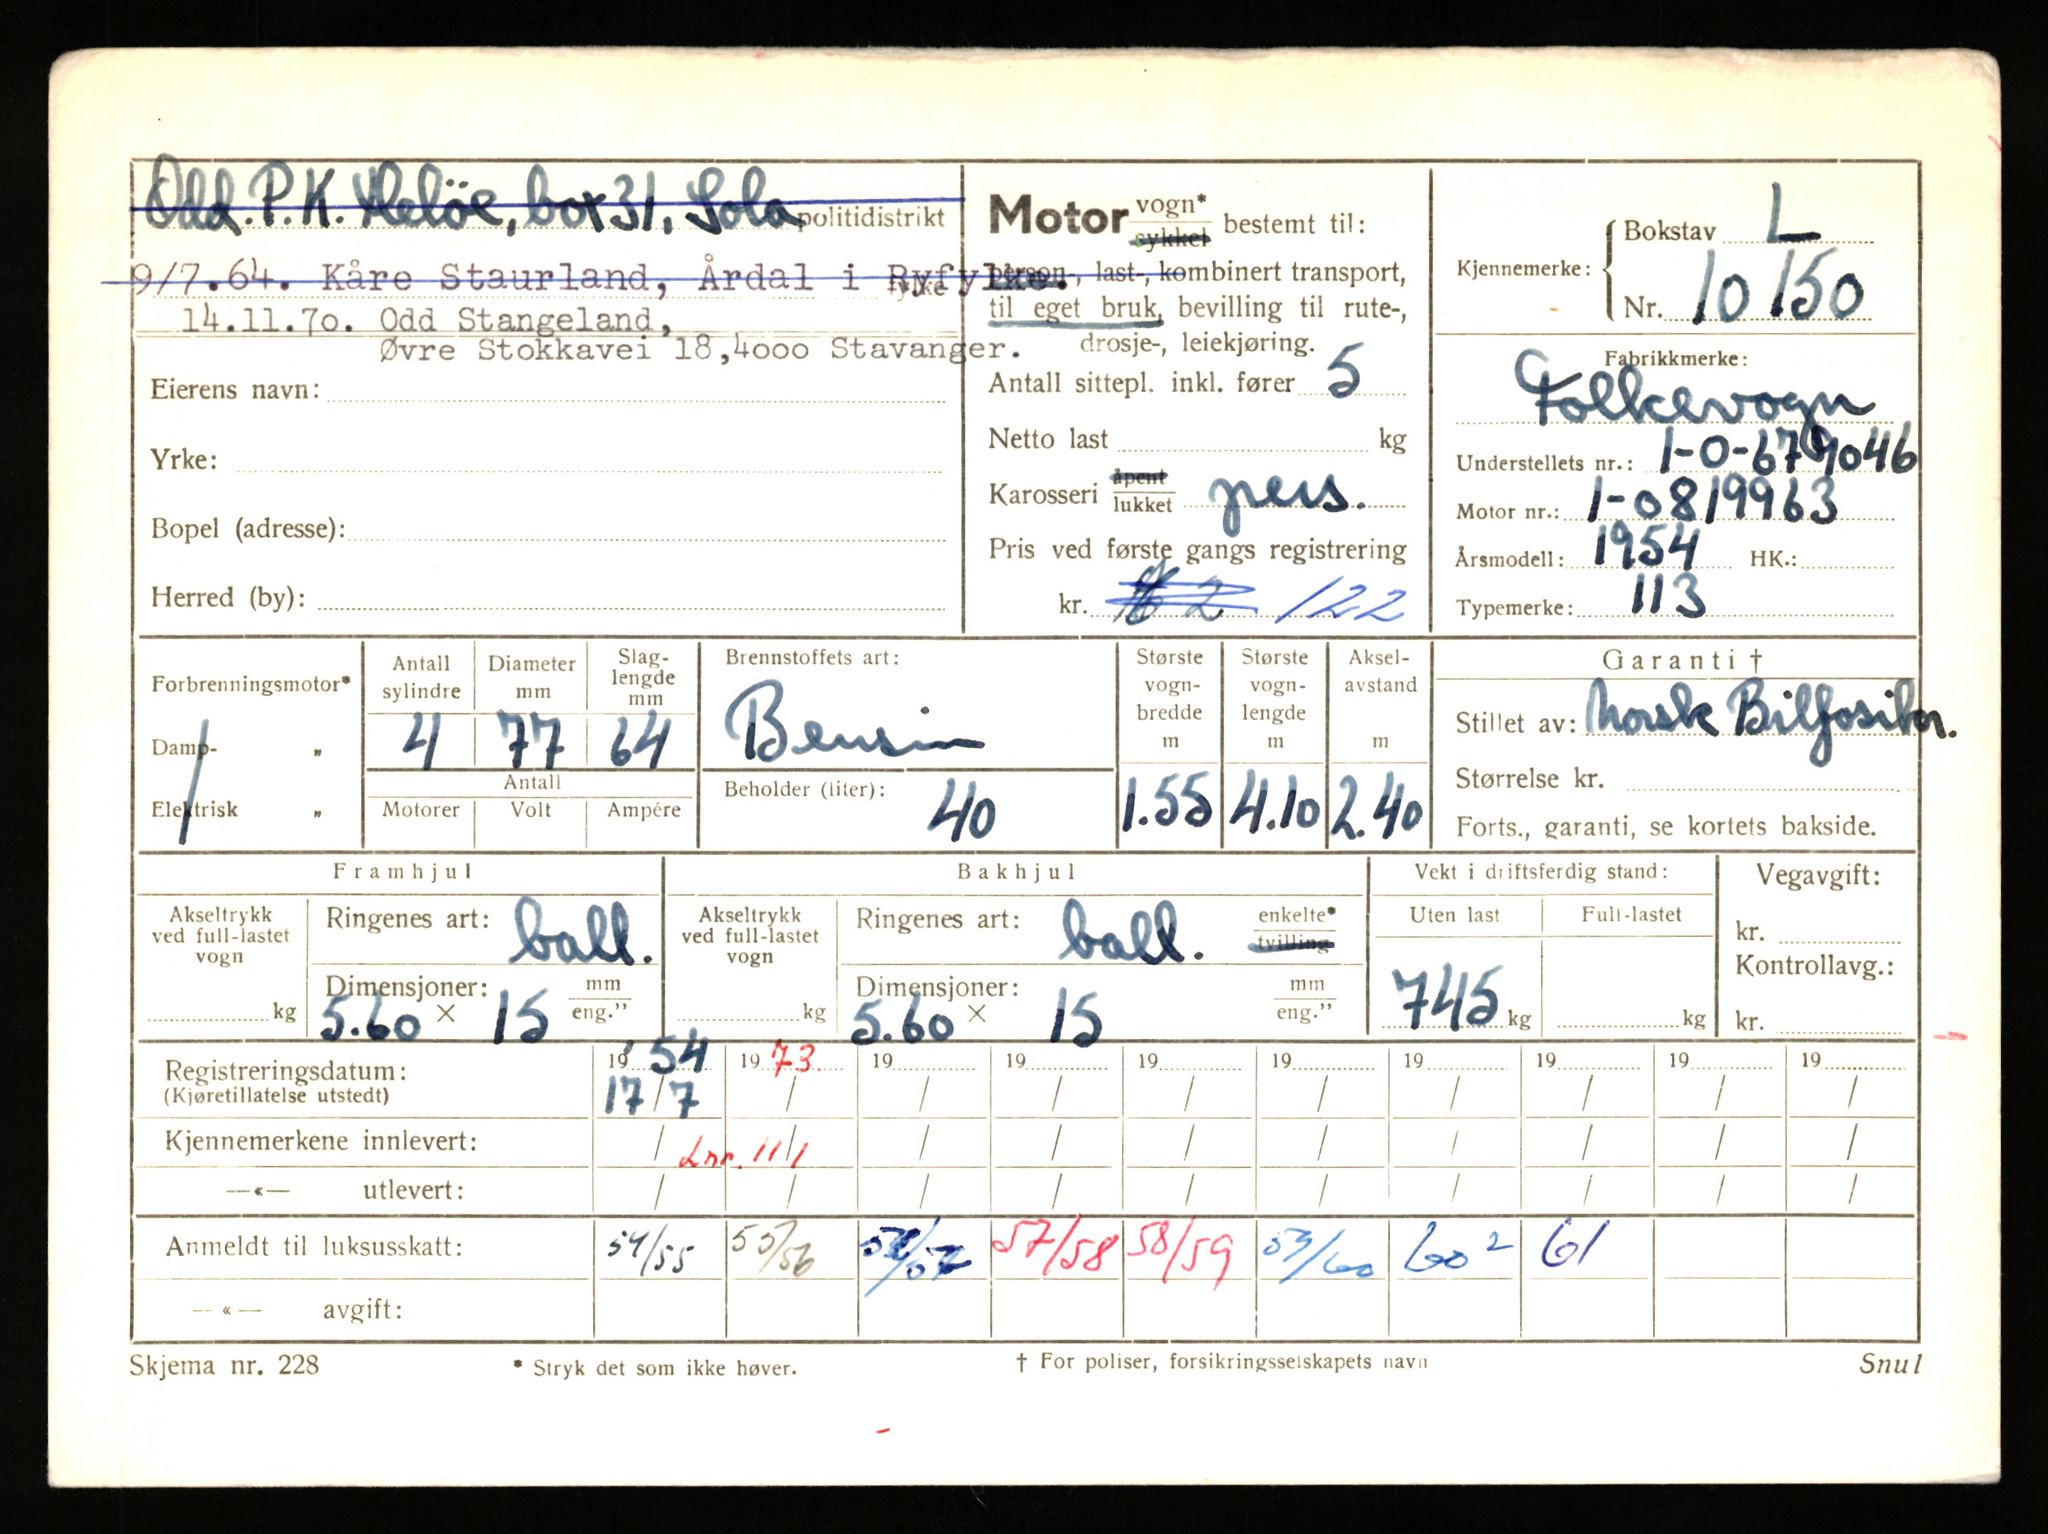 Odd. P. K. Heløe, box 31, Sola politidistrikt
9/7.64. Kåre Staurland, Årdal i Ryfylke.
fylke
14.11.70. Odd Stangeland,
Øvre Stokkavei 18,4000 Stavanger.
Eierens navn:
Yrke:
Bopel (adresse):
Herred (by):
Motor vogn* sykkel bestemt til:
person-, last-, kombinert transport,
til eget bruk, bevilling til rute-,
drosje-, leiekjøring.
Antall sittepl. inkl. fører 5
Netto last kg
Karosseri åpent lukket pers.
Pris ved første gangs registrering
kr. 122
Kjennemerke: Bokstav L
Nr. 10150
Fabrikkmerke:
Folkevogn
Understellets nr.: 1-0-679046
Motor nr.: 1-0819963
Årsmodell: 1954 HK.:
Typemerke: 113
Forbrenningsmotor*
Damp- "
Elektrisk "
Antall sylindre 4
Diameter mm 77
Slag-lengde mm 64
Antall
Motorer Volt Ampére
Brennstoffets art:
Bensin
Beholder (liter): 40
Største vogn-bredde m 1.55
Største vogn-lengde m 4.10
Aksel-avstand m 2.40
Garanti †
Stillet av: Norsk Bilforsikr.
Størrelse kr.
Forts., garanti, se kortets bakside.
Framhjul
Akseltrykk ved full-lastet vogn
kg
Ringenes art: ball.
Dimensjoner: mm eng."
5.60 × 15
Bakhjul
Akseltrykk ved full-lastet vogn
kg
Ringenes art: ball. enkelte* tvilling
Dimensjoner: mm eng."
5.60 × 15
Vekt i driftsferdig stand:
Uten last Full-lastet
745 kg kg
Vegavgift:
kr.
Kontrollavg.:
kr.
Registreringsdatum: 1954 1973. 19 19 19 19 19 19 19 19
(Kjøretillatelse utstedt) 17/7 / / / / / / / / /
Kjennemerkene innlevert: / Lnr. 11/1 / / / / / / / /
—«— utlevert: / / / / / / / / / /
Anmeldt til luksusskatt: 54/55 55/56 56/57 57/58 58/59 59/60 60² 61
—«— avgift:
Skjema nr. 228 * Stryk det som ikke høver. † For poliser, forsikringsselskapets navn Snul